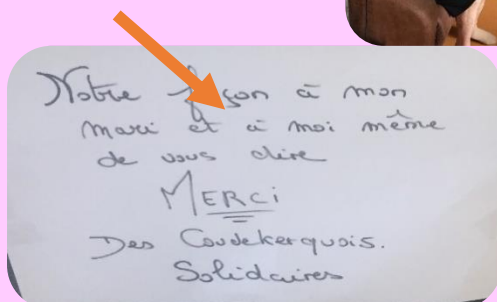 Notre façon à mon
mari et à moi même
de vous dire
MERCi
Des Coudekerquois.
Solidaires